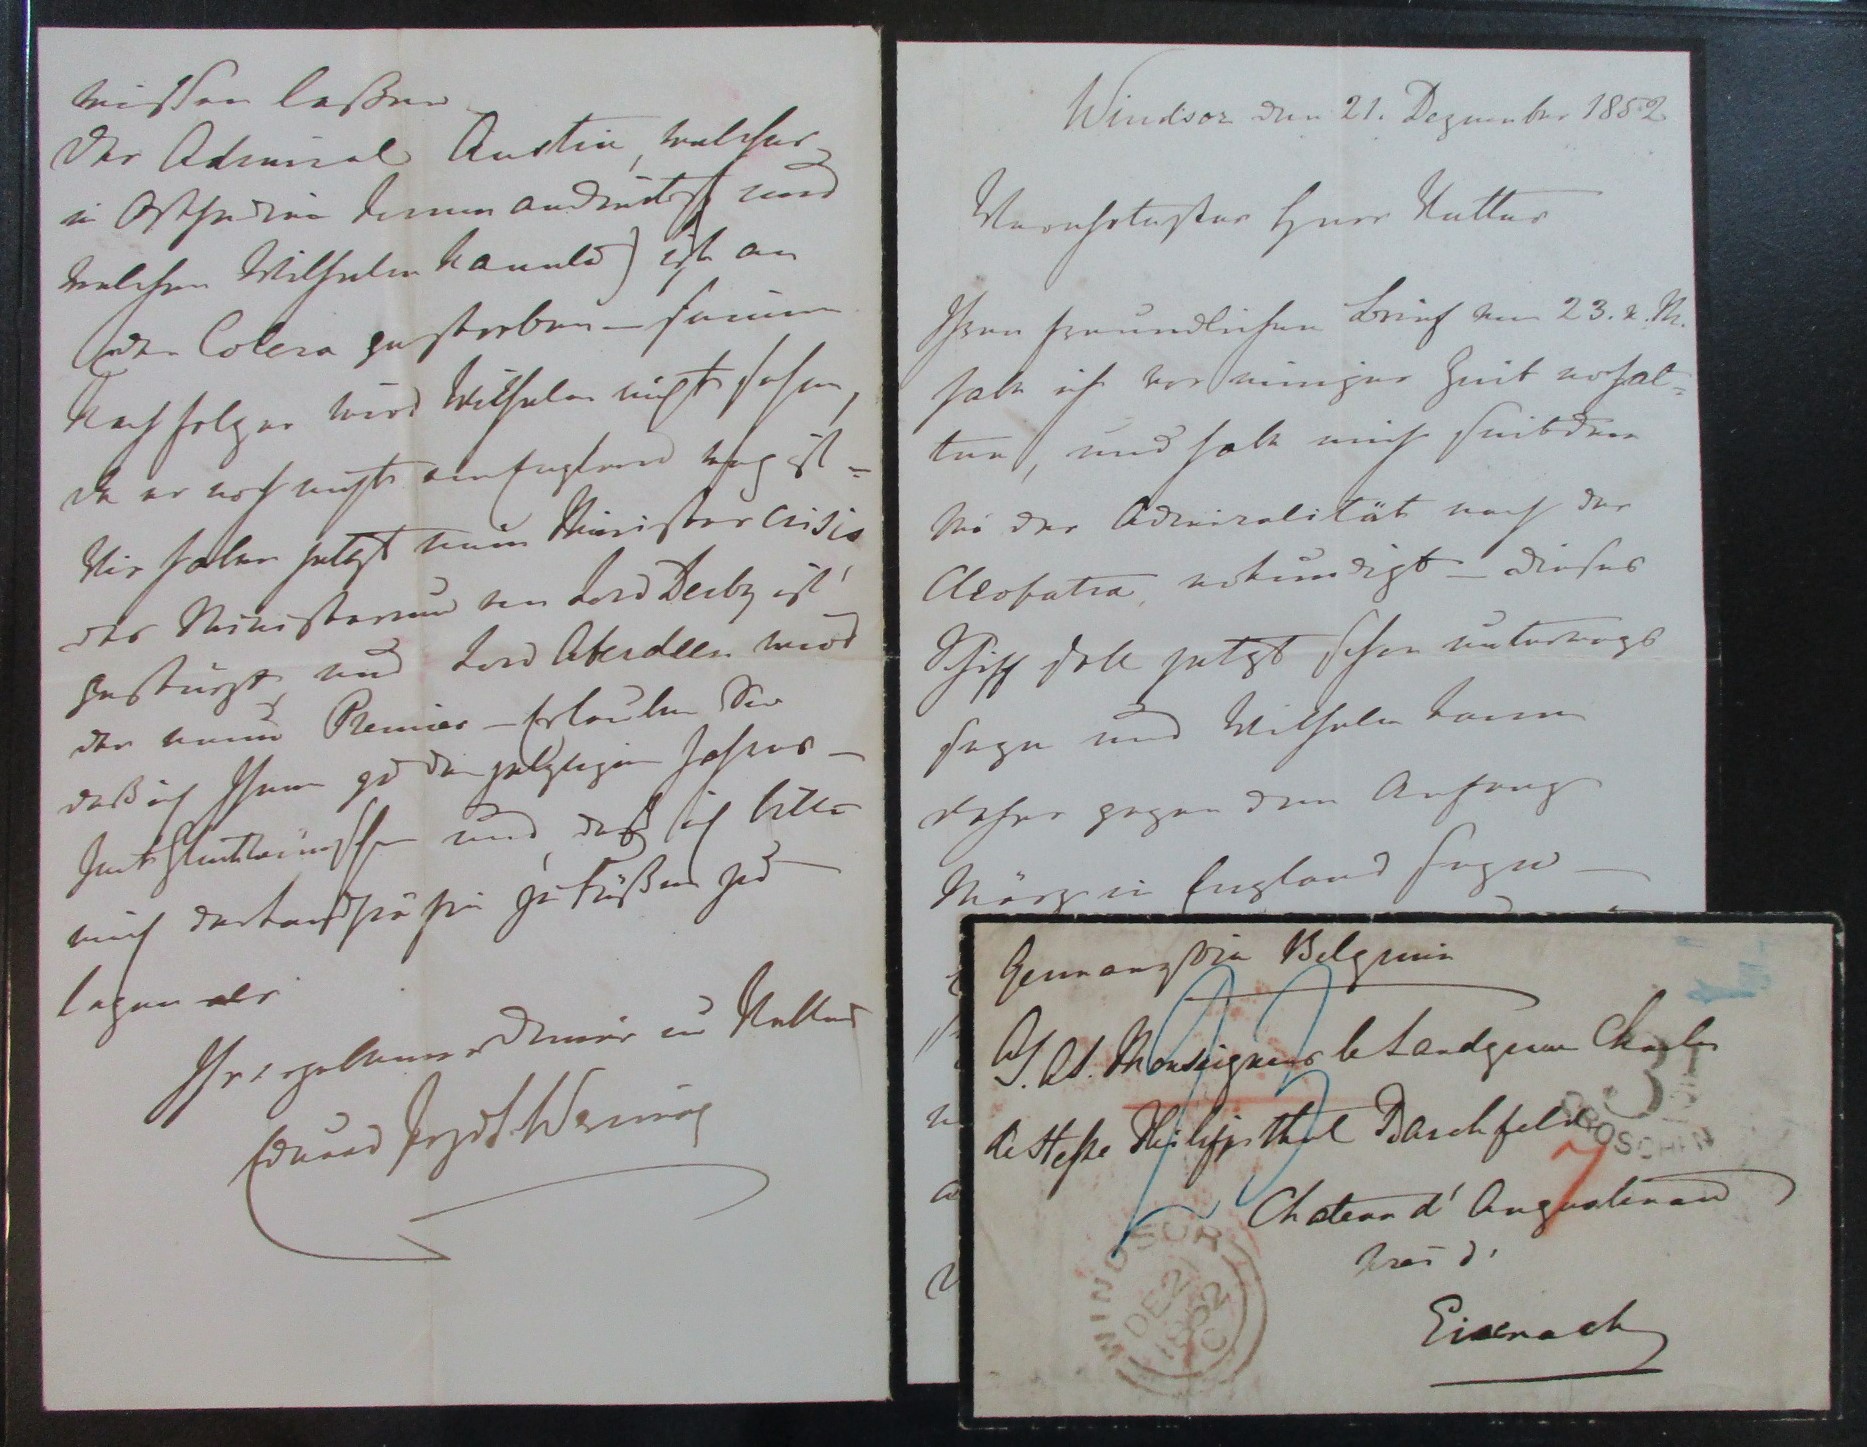 wissen laßen
Der Admiral Austin, welcher
in Ostindien kommandirte und
welchen Wilhelm kannte) ist an
der Colera gestorben – seinen
Nachfolger wird Wilhelm nicht sehen,
da er noch nicht von England weg ist –
Wir haben jetzt Minister crisis,
das Ministerium von Lord Derby ist
gestürzt, und Lord Aberdeen wird
der neue Premier – Erlauben Sie
daß ich Ihnen zu dem jetzigen Jahres-
und daß ich bitte
mich der Landgräfin zu Füßen zu
legen als
Ihr ergebener Diener u Vetter
Eduard Weimar
Windsor den 21. Dezember 1852
Verehrtester Herr Vetter
Ihren freundlichen Brief vom 23. v. M.
habe ich vor einiger Zeit erhal-
ten, und habe mich seitdem
bei der Admiralität nach der
Cleopatra erkundigt – dieses
Schiff soll jetzt schon unterwegs
seyn und Wilhelm kann
daher gegen den Anfang
März in England seyn –
Germany via Belgium
S. A. S. Monseigneur le Landgrave Charles
de Hesse Philippsthal Barchfeld
Chateau d' Augustenau
près d'
Eisenach
WINDSOR
DE 21
1852
C
GROSCHEN
7